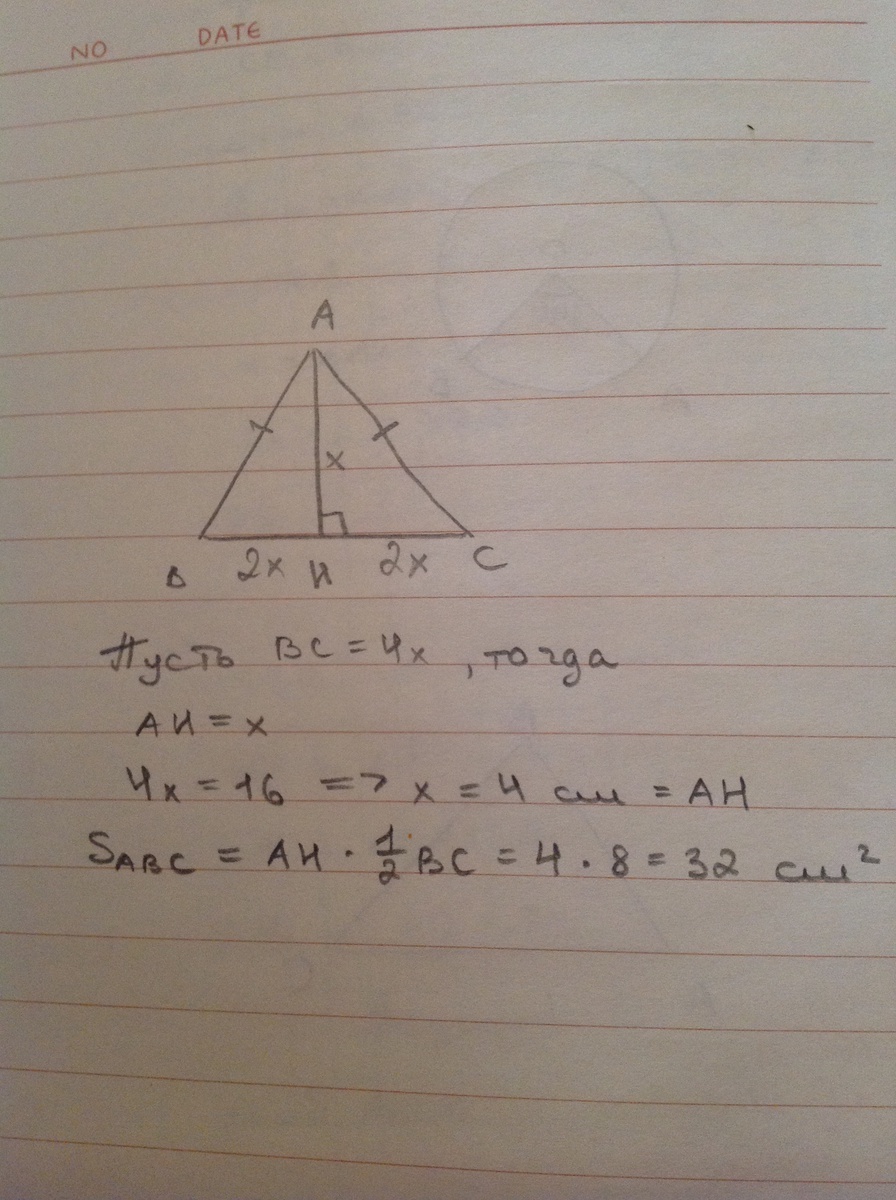 NO DATE
A
x
B 2x H 2x C
Пусть BC = 4x , тогда
AH = x
4x = 16 => x = 4 см = AH
SABC = AH · 1/2 BC = 4 · 8 = 32 см²